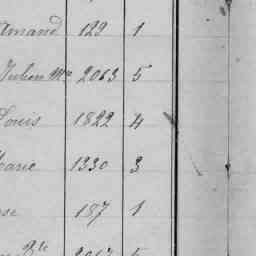 Amand 129 1
Julien Mie 2063 5
Louis 1822 4
Marie 1330 3
187 1